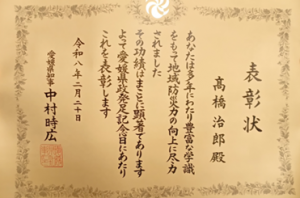 表彰状
高橋治郎殿
あなたは多年にわたり豊富な学識
をもって地域防災力の向上に尽力
されました
その功績はまことに顕著であります
よって愛媛県政発足記念日にあたり
これを表彰します
令和八年二月二十日
愛媛県知事 中村時広